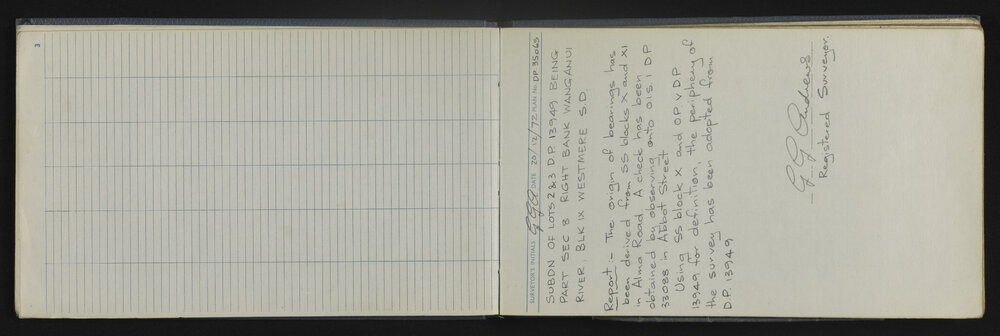 3
SURVEYOR'S INITIALS GGA DATE 20/12/72 PLAN No. DP 35065
SUBDN OF LOTS 2 & 3 D.P. 13949 BEING
PART SEC 8 RIGHT BANK WANGANUI
RIVER, BLK IX WESTMERE S.D.
Report :- The origin of bearings has
been derived from SS blocks X and XI
in Alma Road. A check has been
obtained by observing onto O.I.S. I D.P.
33088 in Abbot Street
Using SS block X and OP V D.P.
13949 for definition, the periphery of
the survey has been adopted from
D.P. 13949
G G Andrews
Registered Surveyor.